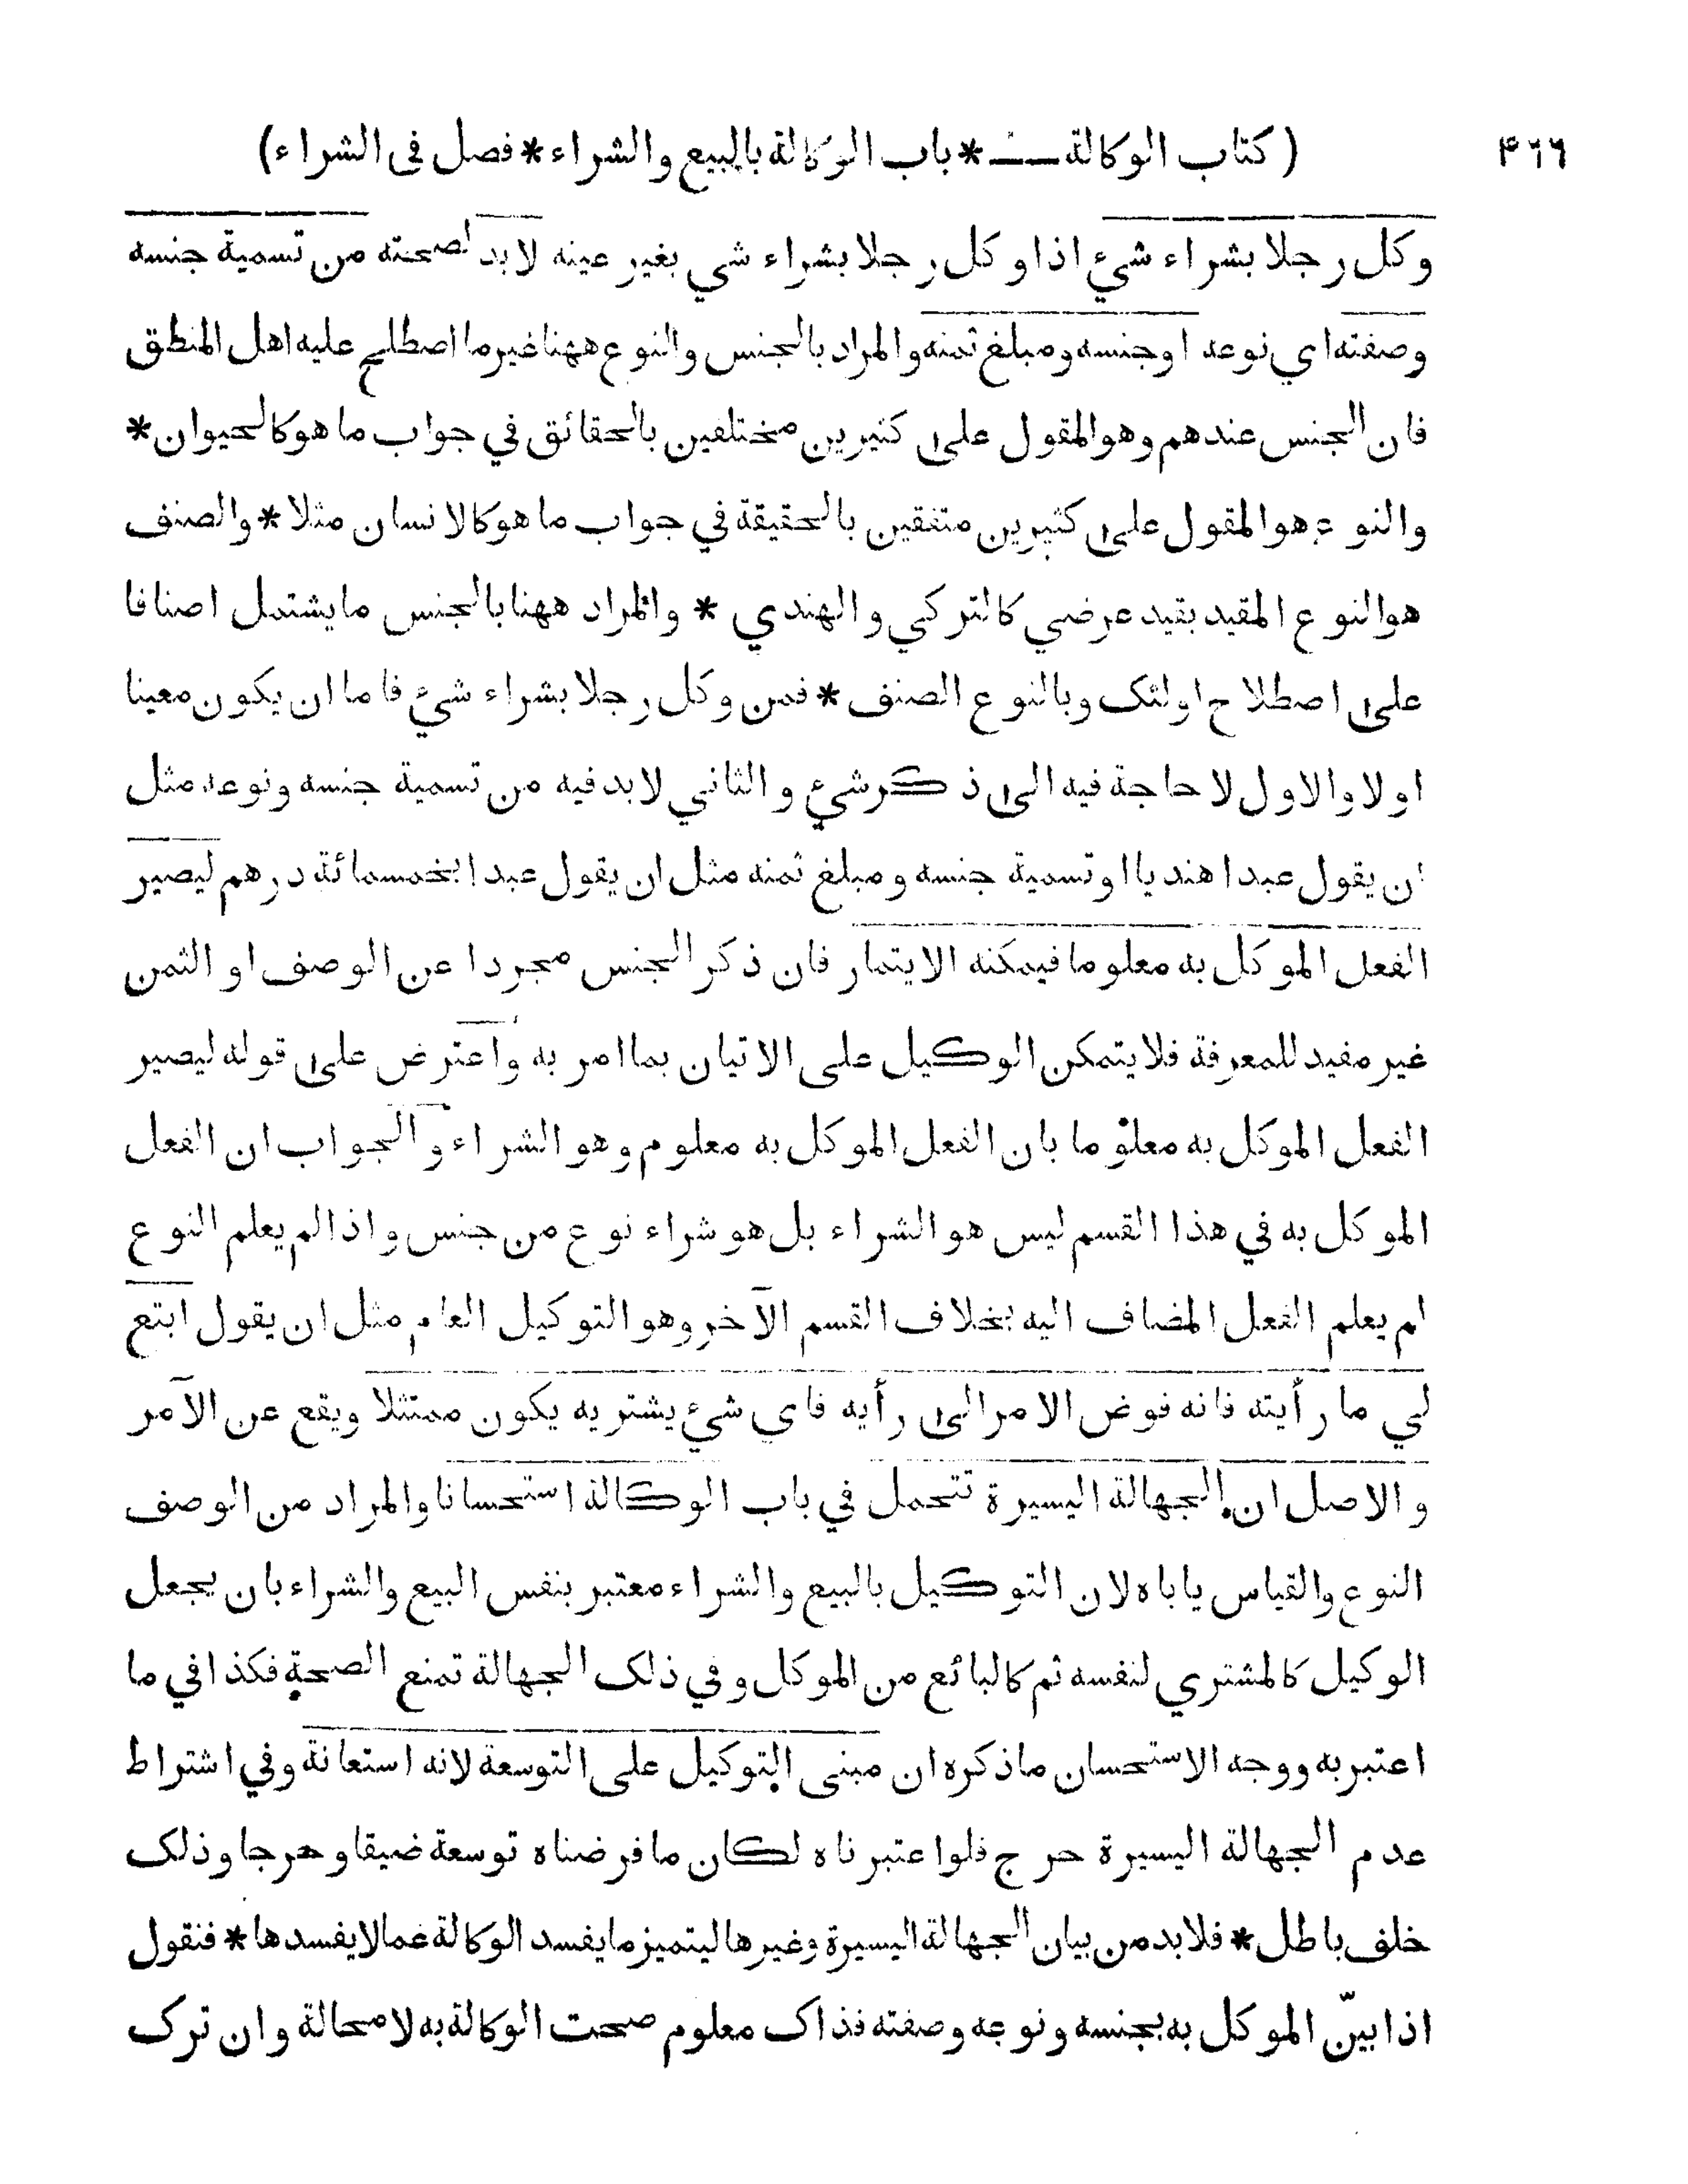 ( كتاب الوكالة * باب الوكالة بالبيع والشراء * فصل فى الشراء) ۴۶۶
وكل رجلا بشراء شيء اذا وكل رجلا بشراء شي بغير عينه لابد لصحته من تسمية جنسه
وصفته اي نوعه اوجنسه ومبلغ ثمنه والمراد بالجنس والنوع ههنا غير ما اصطلح عليه اهل المنطق
فان الجنس عندهم وهو المقول على كثيرين مختلفين بالحقائق في جواب ما هو كالحيوان *
والنوع هو المقول على كثيرين متفقين بالحقيقة في جواب ما هو كالانسان مثلا * والصنف
هو النوع المقيد بقيد عرضي كالتركي والهندي * والمراد ههنا بالجنس ما يشتمل اصنافا
على اصطلاح اولئك وبالنوع الصنف * فمن وكل رجلا بشراء شيء فاما ان يكون معينا
اولا والاول لا حاجة فيه الى ذكر شيء والثاني لابد فيه من تسمية جنسه ونوعه مثل
ان يقول عبدا هنديا او تسمية جنسه ومبلغ ثمنه مثل ان يقول عبدا بخمسمائة درهم ليصير
الفعل الموكل به معلوما فيمكنه الايتمار فان ذكر الجنس مجردا عن الوصف او الثمن
غير مفيد للمعرفة فلا يتمكن الوكيل على الاتيان بما امر به واعترض على قوله ليصير
الفعل الموكل به معلوما بان الفعل الموكل به معلوم وهو الشراء والجواب ان الفعل
الموكل به في هذا القسم ليس هو الشراء بل هو شراء نوع من جنس واذا لم يعلم النوع
لم يعلم الفعل المضاف اليه بخلاف القسم الآخر وهو التوكيل العام مثل ان يقول ابتع
لي ما رأيته فانه فوض الامر الى رأيه فاي شيء يشتريه يكون ممتثلا ويقع عن الآمر
والاصل ان الجهالة اليسيرة تتحمل في باب الوكالة استحسانا والمراد من الوصف
النوع والقياس ياباه لان التوكيل بالبيع والشراء معتبر بنفس البيع والشراء بان يجعل
الوكيل كالمشتري لنفسه ثم كالبائع من الموكل وفي ذلك الجهالة تمنع الصحة فكذا في ما
اعتبر به ووجه الاستحسان ما ذكره ان مبنى التوكيل على التوسعة لانه استعانة وفي اشتراط
عدم الجهالة اليسيرة حرج فلو اعتبرناه لكان ما فرضناه توسعة ضيقا وحرجا وذلك
خلف باطل * فلابد من بيان الجهالة اليسيرة وغيرها ليتميز ما يفسد الوكالة عما لا يفسدها * فنقول
اذا بيّن الموكل به بجنسه ونوعه وصفته فذاك معلوم صحت الوكالة به لا محالة وان ترك